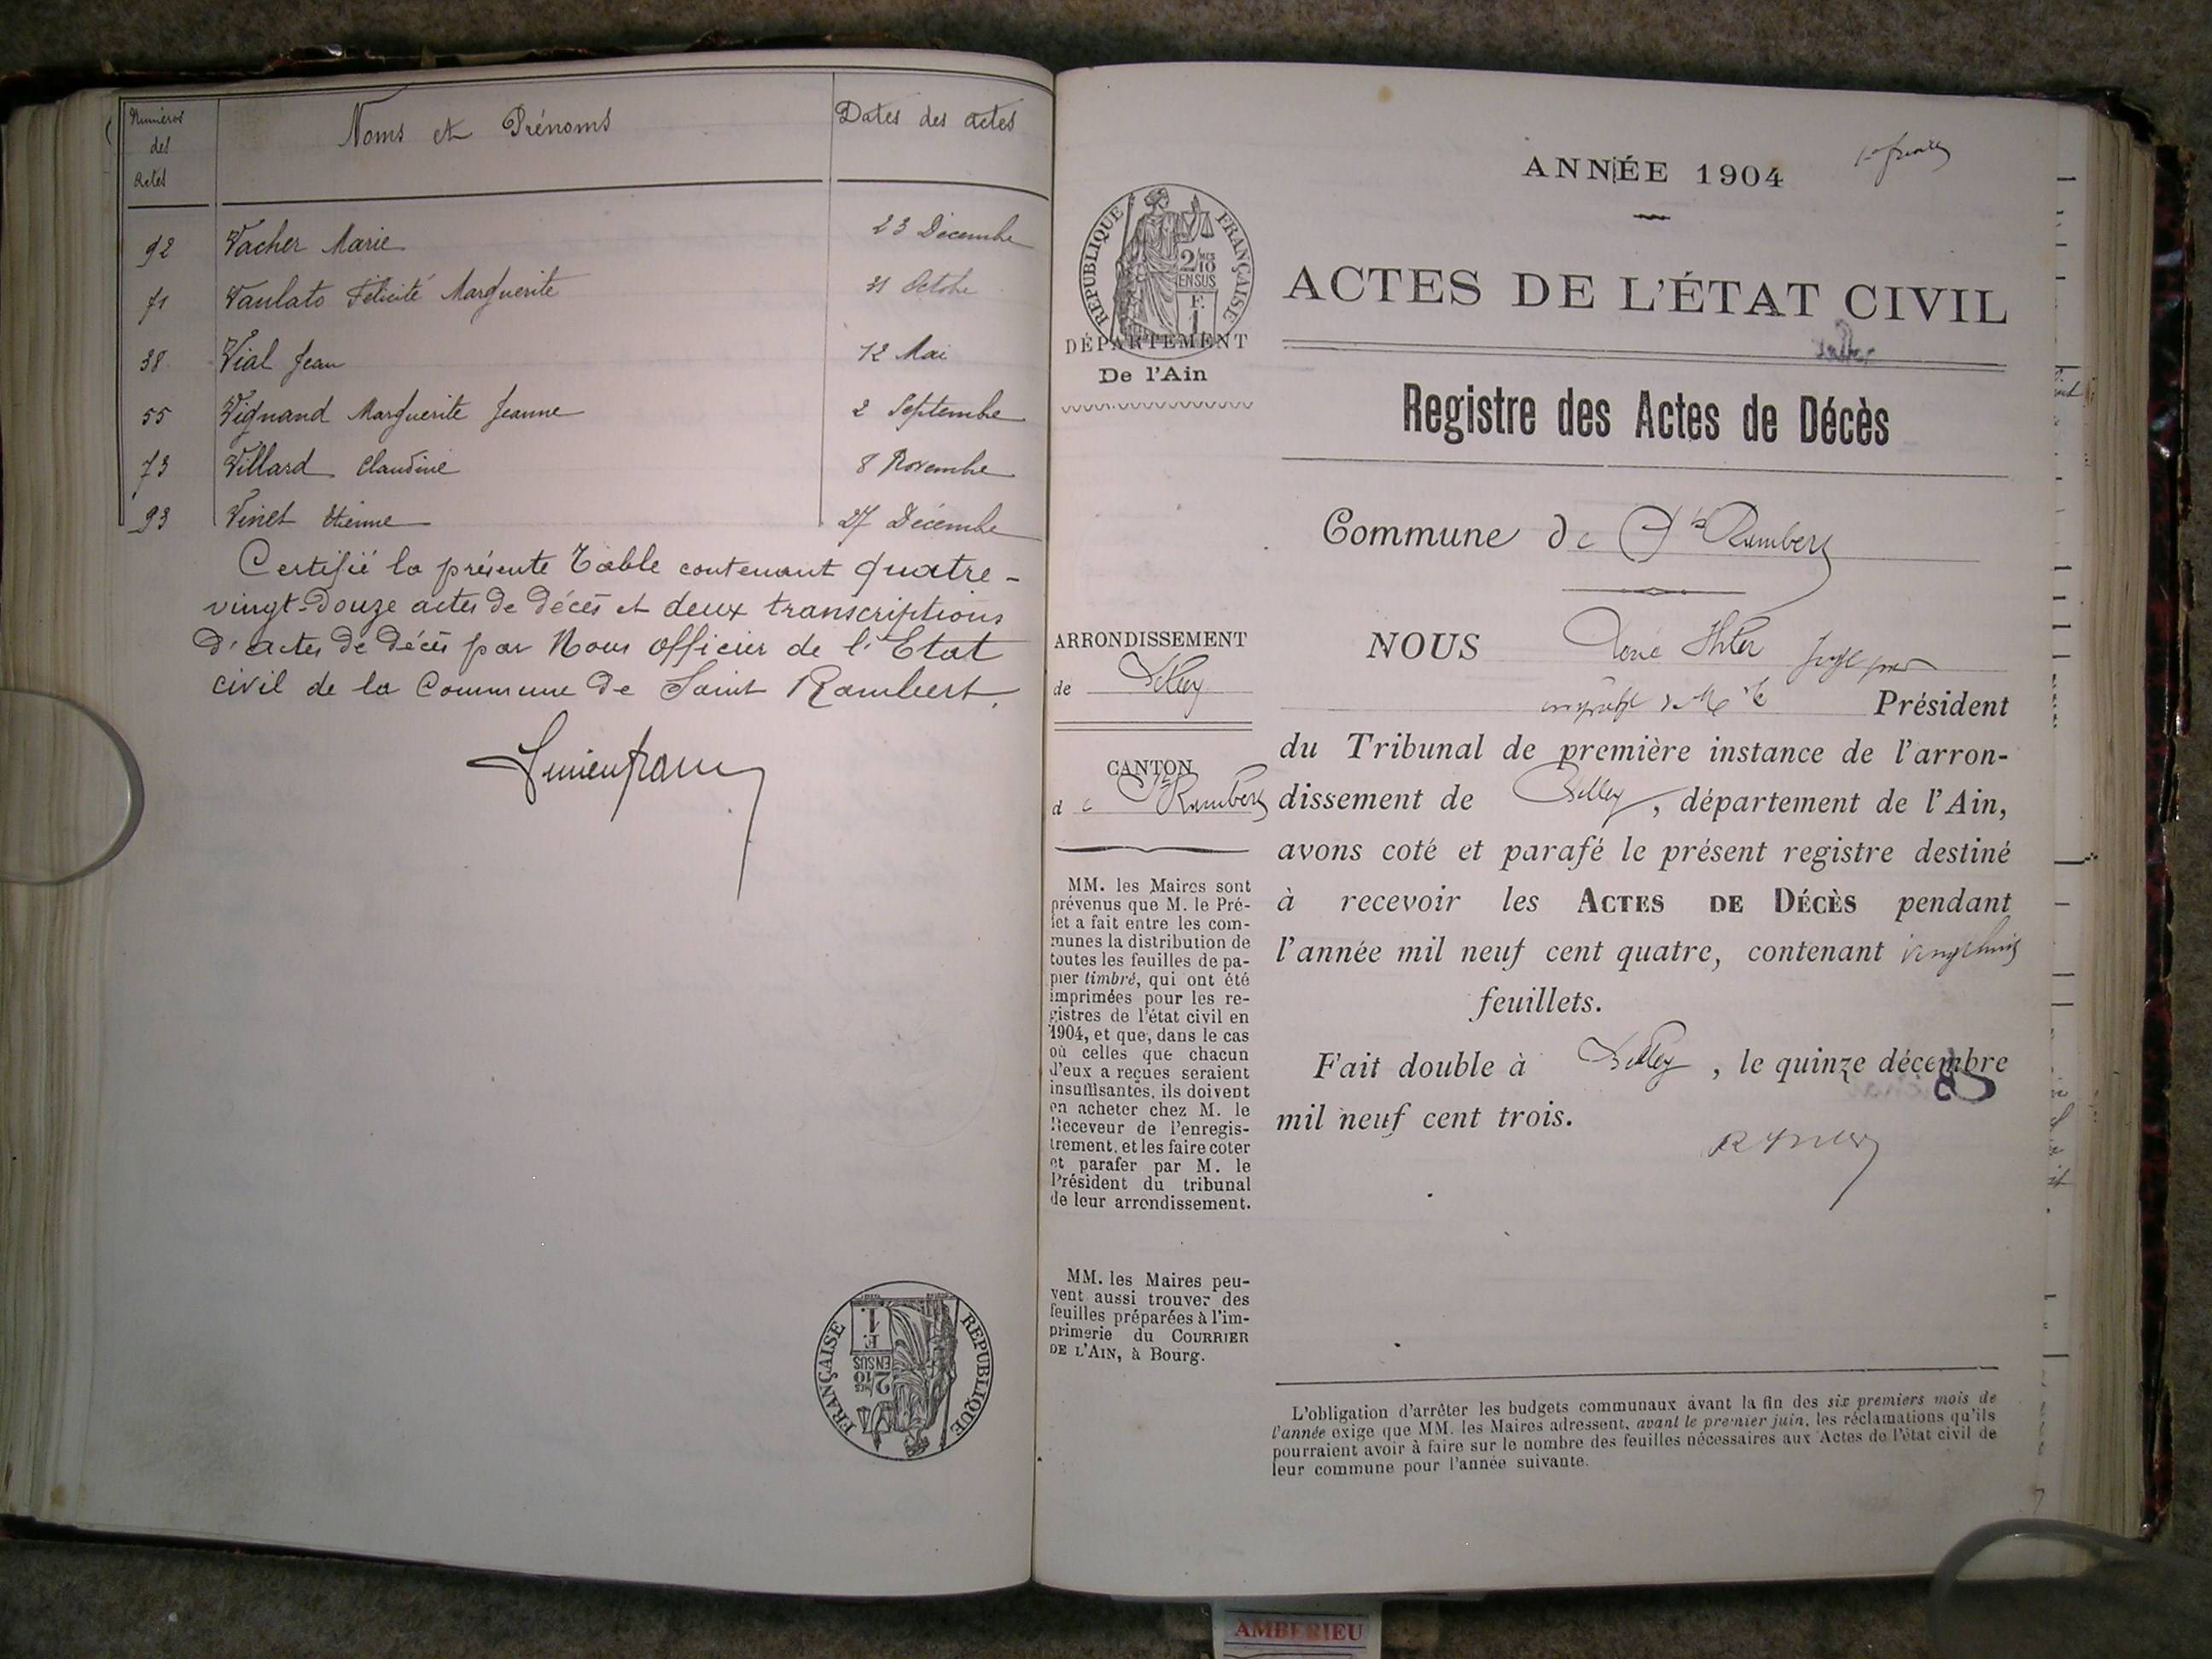 Numéros
des
Actes
Noms et Prénoms
Dates des actes
92 Vacher Marie 23 Décembre
71 Vaulato Félicité Marguerite 31 Octobre
38 Vial Jean 12 Mai
55 Vignand Marguerite Jeanne 2 Septembre
73 Villard Claudine 8 Novembre
93 Vinet Etienne 27 Décembre
Certifié la présente Table contenant quatre-
vingt-douze actes de décès et deux transcriptions
d'actes de décès par Nous Officier de l'Etat
civil de la Commune de Saint Rambert.
RÉPUBLIQUE FRANÇAISE
2/10 MES
EN SUS
1 F.
ANNÉE 1904
RÉPUBLIQUE FRANÇAISE
2/10 MES
EN SUS
F.
1
DÉPARTEMENT
De l'Ain
ARRONDISSEMENT
de Belley
CANTON
de St Rambert
MM. les Maires sont
prévenus que M. le Pré-
fet a fait entre les com-
munes la distribution de
toutes les feuilles de pa-
pier timbré, qui ont été
imprimées pour les re-
gistres de l'état civil en
1904, et que, dans le cas
où celles que chacun
d'eux a reçues seraient
insuffisantes, ils doivent
en acheter chez M. le
Receveur de l'enregis-
trement, et les faire coter
et parafer par M. le
Président du tribunal
de leur arrondissement.
MM. les Maires peu-
vent aussi trouver des
feuilles préparées à l'im-
primerie du COURRIER
DE L'AIN, à Bourg.
ACTES DE L'ÉTAT CIVIL
Registre des Actes de Décès
Commune de St Rambert
NOUS René
Président
du Tribunal de première instance de l'arron-
dissement de Belley, département de l'Ain,
avons coté et parafé le présent registre destiné
à recevoir les ACTES DE DÉCÈS pendant
l'année mil neuf cent quatre, contenant vingt huit
feuillets.
Fait double à Belley, le quinze décembre
mil neuf cent trois.
L'obligation d'arrêter les budgets communaux avant la fin des six premiers mois de
l'année exige que MM. les Maires adressent, avant le premier juin, les réclamations qu'ils
pourraient avoir à faire sur le nombre des feuilles nécessaires aux Actes de l'état civil de
leur commune pour l'année suivante.
AMBERIEU